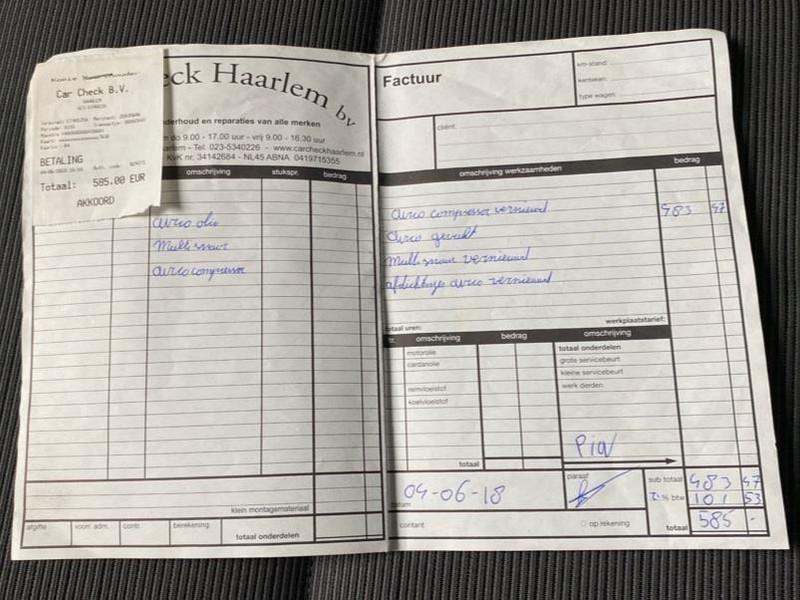 Car Check B.V.
HAARLEM
BETALING
Totaal: 585.00 EUR
AKKOORD
eck Haarlem bv
nderhoud en reparaties van alle merken
do 9.00 - 17.00 uur - vrij 9.00 - 16.30 uur
arlem - Tel. 023-5340226 - www.carcheckhaarlem.nl
KvK nr. 34142684 - NL45 ABNA 0419715355
omschrijving stukspr. bedrag
airco olie
Multisnaar
airco compressor
klein montagemateriaal
afgifte voorr. adm. contr. berekening totaal onderdelen
Factuur
km-stand:
kenteken:
type wagen:
cliënt:
omschrijving werkzaamheden bedrag
airco compressor vernieuwd 483 47
airco gevuld
Multisnaar vernieuwd
afdichtingen airco vernieuwd
totaal uren: werkplaatstarief:
omschrijving bedrag omschrijving
motorolie totaal onderdelen
cardanolie grote servicebeurt
kleine servicebeurt
remvloeistof werk derden
koelvloeistof
Pin
totaal
datum 04-06-18 paraaf sub totaal 483 47
21% btw 101 53
contant op rekening totaal 585 -